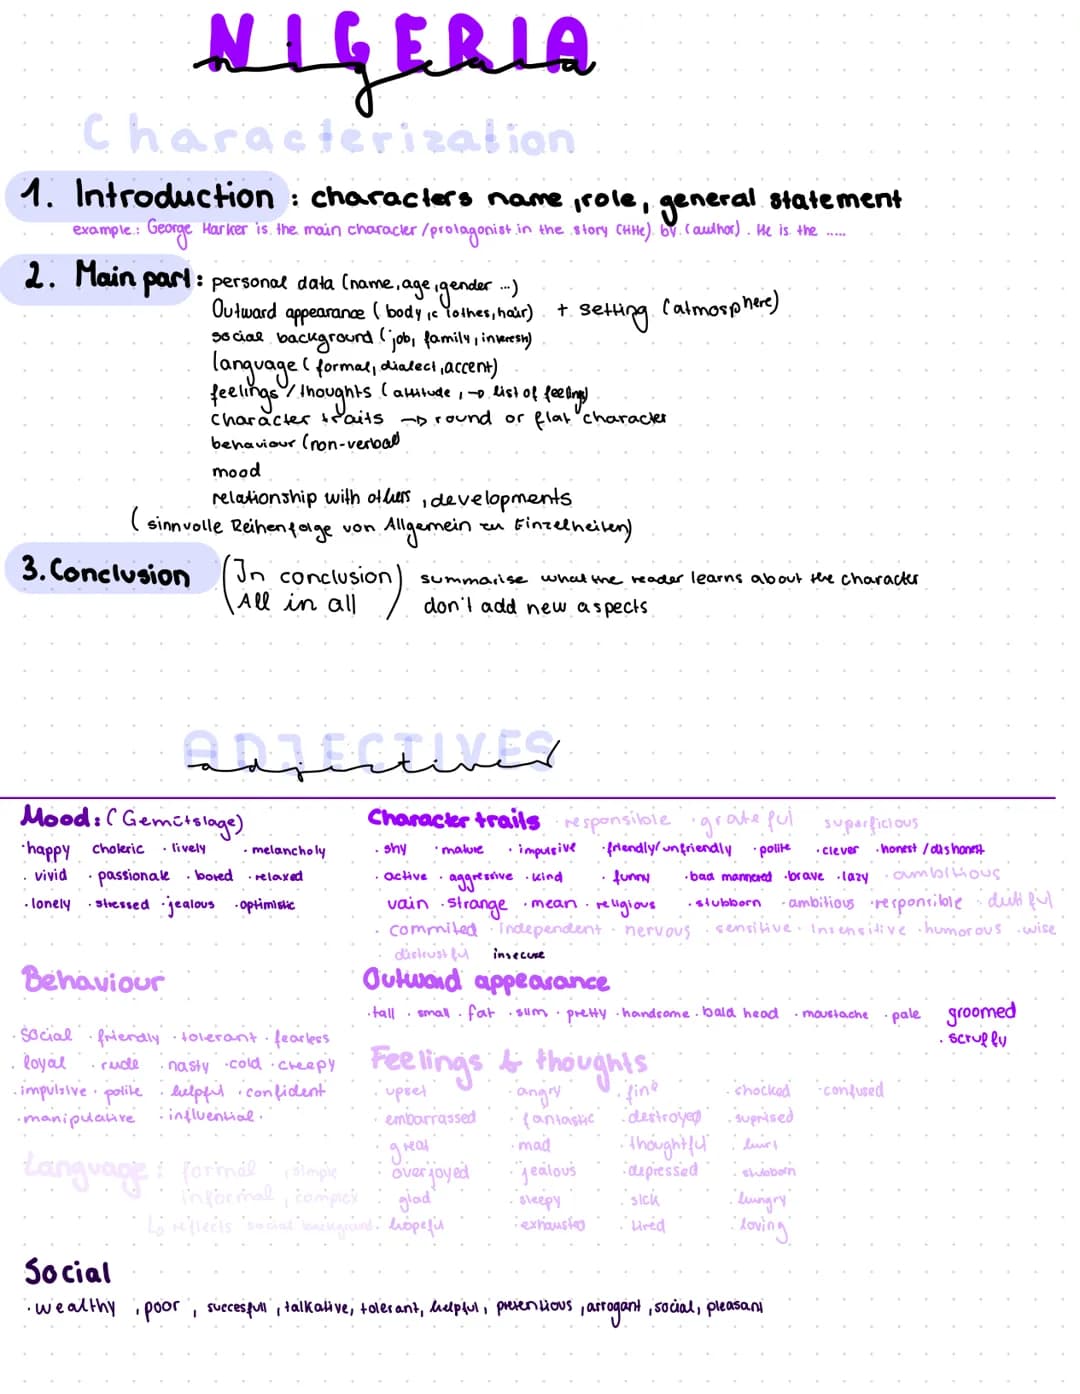 NIGERIA
nigeria
Characterization
1. Introduction : characters name, role, general statement
example: George Harker is the main character/protagonist in the story (title) by (author). He is the .....
2. Main part: personal data (name, age, gender ...)
Outward appearance (body, clothes, hair) + setting (atmosphere)
social background (job, family, interest)
language (formal, dialect, accent)
feelings / thoughts (attitude, → list of feelings)
character traits → round or flat character
behaviour (non-verbal
mood
relationship with others, developments
(sinnvolle Reihenfolge von Allgemein zu Einzelheiten)
3. Conclusion (In conclusion) summarise what the reader learns about the character
(All in all) don't add new aspects
ADJECTIVES
adjectives
Mood: (Gemütslage)
· happy choleric · lively · melancholy
· vivid · passionate · bored · relaxed
· lonely · stressed · jealous · optimistic
Character traits · responsible · grateful superficious
· shy · mature · impulsive · friendly/unfriendly · polite · clever · honest / dishonest
· active · aggressive · kind · funny · bad mannered · brave · lazy · ambitious
vain · strange · mean · religious · stubborn · ambitious · responsible · dutiful
· commited · Independent · nervous · sensitive · Insensitive · humorous · wise
· distrustful insecure
Behaviour
· social · friendly · tolerant · fearless
· loyal · rude · nasty · cold · creepy
· impulsive · polite · helpful · confident
· manipulative · influential ·
Outward appearance
· tall · small · fat · slim · pretty · handsome · bald head · moustache · pale groomed
· scruffy
Feelings & thoughts
· upset · angry · fine · shocked · confused
· embarrassed · fantastic · destroyed · suprised
· great · mad · thoughtful · hurt
· overjoyed · jealous · depressed · stubborn
· glad · sleepy · sick · hungry
· hopeful · exhausted · tired · loving
Language: formal, simple
informal, complex
↳ reflects social background
Social
· wealthy, poor, succesfull, talkative, tolerant, helpful, pretentious, arrogant, social, pleasant